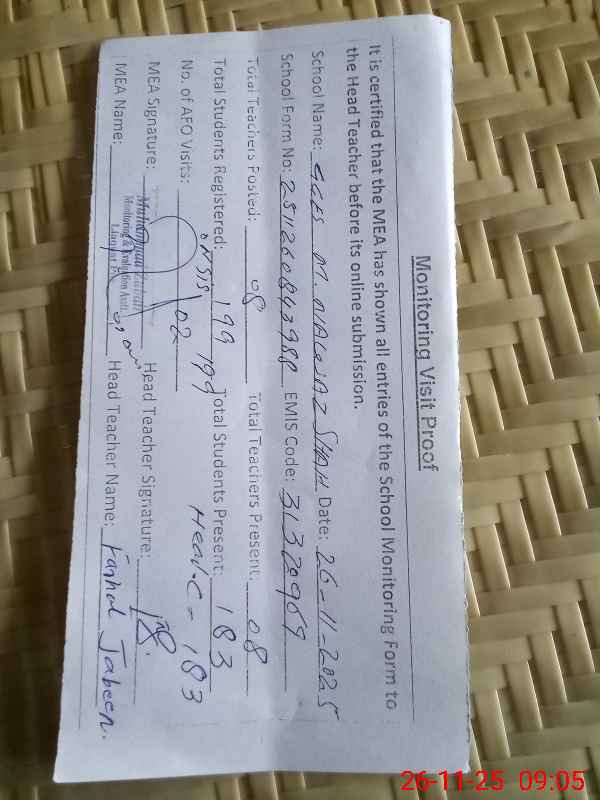 Monitoring Visit Proof
It is certified that the MEA has shown all entries of the School Monitoring Form to
the Head Teacher before its online submission.
School Name: GGES M. NAWAZ SHAH Date: 26-11-2025
School Form No: EMIS Code: 31320969
Total Teachers Posted: 08 Total Teachers Present: 08
Total Students Registered: 199 Total Students Present: 183
NSIS 199 Head.C - 183
No. of AEO Visits: 02
MEA Signature: Head Teacher Signature:
Monitoring & Evaluation Asstt.
MEA Name: Head Teacher Name: Jabeen.
26-11-25 09:05